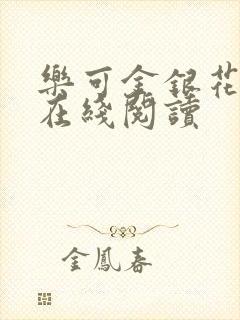 樂可金銀花
在綫閱讀
金鳳春